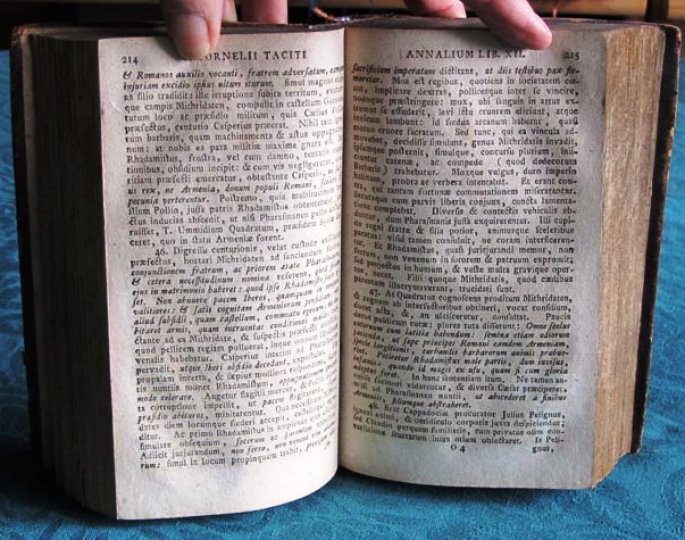 214 CORNELII TACITI
& Romanos auxilio vocanti, fratrem adversatum, eamque
injuriam excidio ipsius ultum iturum. simul magnas copias
as filio tradidit: ille irruptione subita territum, exutumque
que campis Mithridaten, compulit in castellum Gorneas
tutum loco ac præsidio militum, quis Cælius Pollio
præfectus, centurio Casperius præerat. Nihil tam
rum barbaris, quam machinamenta & astus oppugnationum
num: at nobis ea pars militiæ maxime gnara est.
Rhadamistus, frustra, vel cum damno, tentatis
tionibus, obsidium incipit: & cum vis negligeretur,
ritiam præfecti emercatur, obtestante Casperio, ne
us rex, ne Armenia, donum populi Romani, scelere &
pecunia verterentur. Postremo, quia multitudinem
lium Pollio, jussa patris Rhadamistus obtendebant,
ctus inducias abscedit, ut nisi Pharasmanen bello
ruisset, T. Ummidium Quadratum, præsidem
ceret, quo in statu Armeniæ forent.
46. Digressu centurionis, velut custode exsolutus
præfectus, hortari Mithridaten ad sanciendum
conjunctionem fratrum, ac priorem ætate Pharasmanen
& cetera necessitudinum nomina referens, quod
ejus in matrimonio haberet: quod ipse Rhadamisto
set. Non abnuere pacem Iberos, quanquam in tempore
validiores: & satis cognitam Armeniorum perfidiam
aliud subsidii, quam castellum, commeatu egenum:
bitaret armis, quam incruentas conditiones malle.
ctante ad ea Mithridate, & suspectis præfecti
quod pellicem regiam polluerat, inque omnem
venalis habebatur. Casperius interim ad Pharasmanen
pervadit, utque Iberi obsidio decedant, expostulat.
propalam incerta, & sæpius molliora respondens,
tis nuntiis monet Rhadamistum, oppugnationem
modo celerare. Augetur flagitii merces, & Pollio
ta corruptione impellit, ut pacem flagitarent,
præsidio abituros, minitarentur. Qua necessitate
datem diem locumque fœderi accepit, castelloque
ditur. Ac primo Rhadamistus in amplexus ejus
simulare obsequium, socerum ac parentem appellare.
Adjicit jusjurandum, non ferro, non veneno vim
rum: simul in locum propinquum trahit, provisum
ANNALIUM LIB. XII. 215
sacrificium imperatum dictitans, ut diis testibus pax firmaretur.
Mos est regibus, quotiens in societatem coëant,
implicare dextras, pollicesque inter se vincire,
nodoque præstringere: mox, ubi sanguis in artus extremos
se effuderit, levi ictu cruorem eliciunt, atque
invicem lambunt: id fœdus arcanum habetur, quasi
mutuo cruore sacratum. Sed tunc, qui ea vincula admovebat,
decidisse simulans, genua Mithridatis invadit,
ipsumque prosternit, simulque, concursu plurium, iniiciuntur
catenæ, ac compede (quod dedecorum
barbaris) trahebatur. Moxque vulgus, duro imperio
habitum, probra ac verbera intentabat. Et erant contra,
qui tantam fortunæ commutationem miserarentur.
Secutaque cum parvis liberis conjunx, cuncta lamentatione
complebat. Diversis & contectis vehiculis abduntur,
dum Pharasmanis jussa exquirerentur. Illi cupido
regni fratre & filia potior, animusque sceleribus
paratus: visui tamen consuluit, ne coram interficerentur.
Et Rhadamistus, quasi jurisjurandi memor, non
ferrum, non venenum in sororem & patruum expromit,
sed projectos in humum, & veste multa gravique opertos,
necat. Filii quoque Mithridatis, quod cædibus
parentum illacrymaverant, trucidati sunt.
47. At Quadratus cognoscens proditum Mithridaten,
& regnum ab interfectoribus obtineri, vocat consilium,
docet acta, &, an ulcisceretur, consultat. Paucis
decus publicum curæ: plures tuta disserunt: Omne scelus
externum cum lætitia habendum: semina etiam odiorum
jacienda, ut sæpe principes Romani eamdem Armeniam,
specie largitionis, turbandis barbarorum animis præbuerint.
Potiretur Rhadamistus male partis, dum invisus,
infamis, quando id magis ex usu, quam si cum gloria
adeptus foret. In hanc sententiam itum. Ne tamen annuisse
facinori viderentur, & diversa Cæsar præciperet,
missi ad Pharasmanen nuntii, ut abscederet a finibus
Armeniis, filiumque abstraheret.
48. Erat Cappadociæ procurator Julius Pelignus,
ignavi animi, & deridiculo corporis juxta despiciendus;
sed Claudio perquam familiaris, cum privatus olim conversatione
scurrarum iners otium oblectaret. Is Peli-
O 4 gnus,